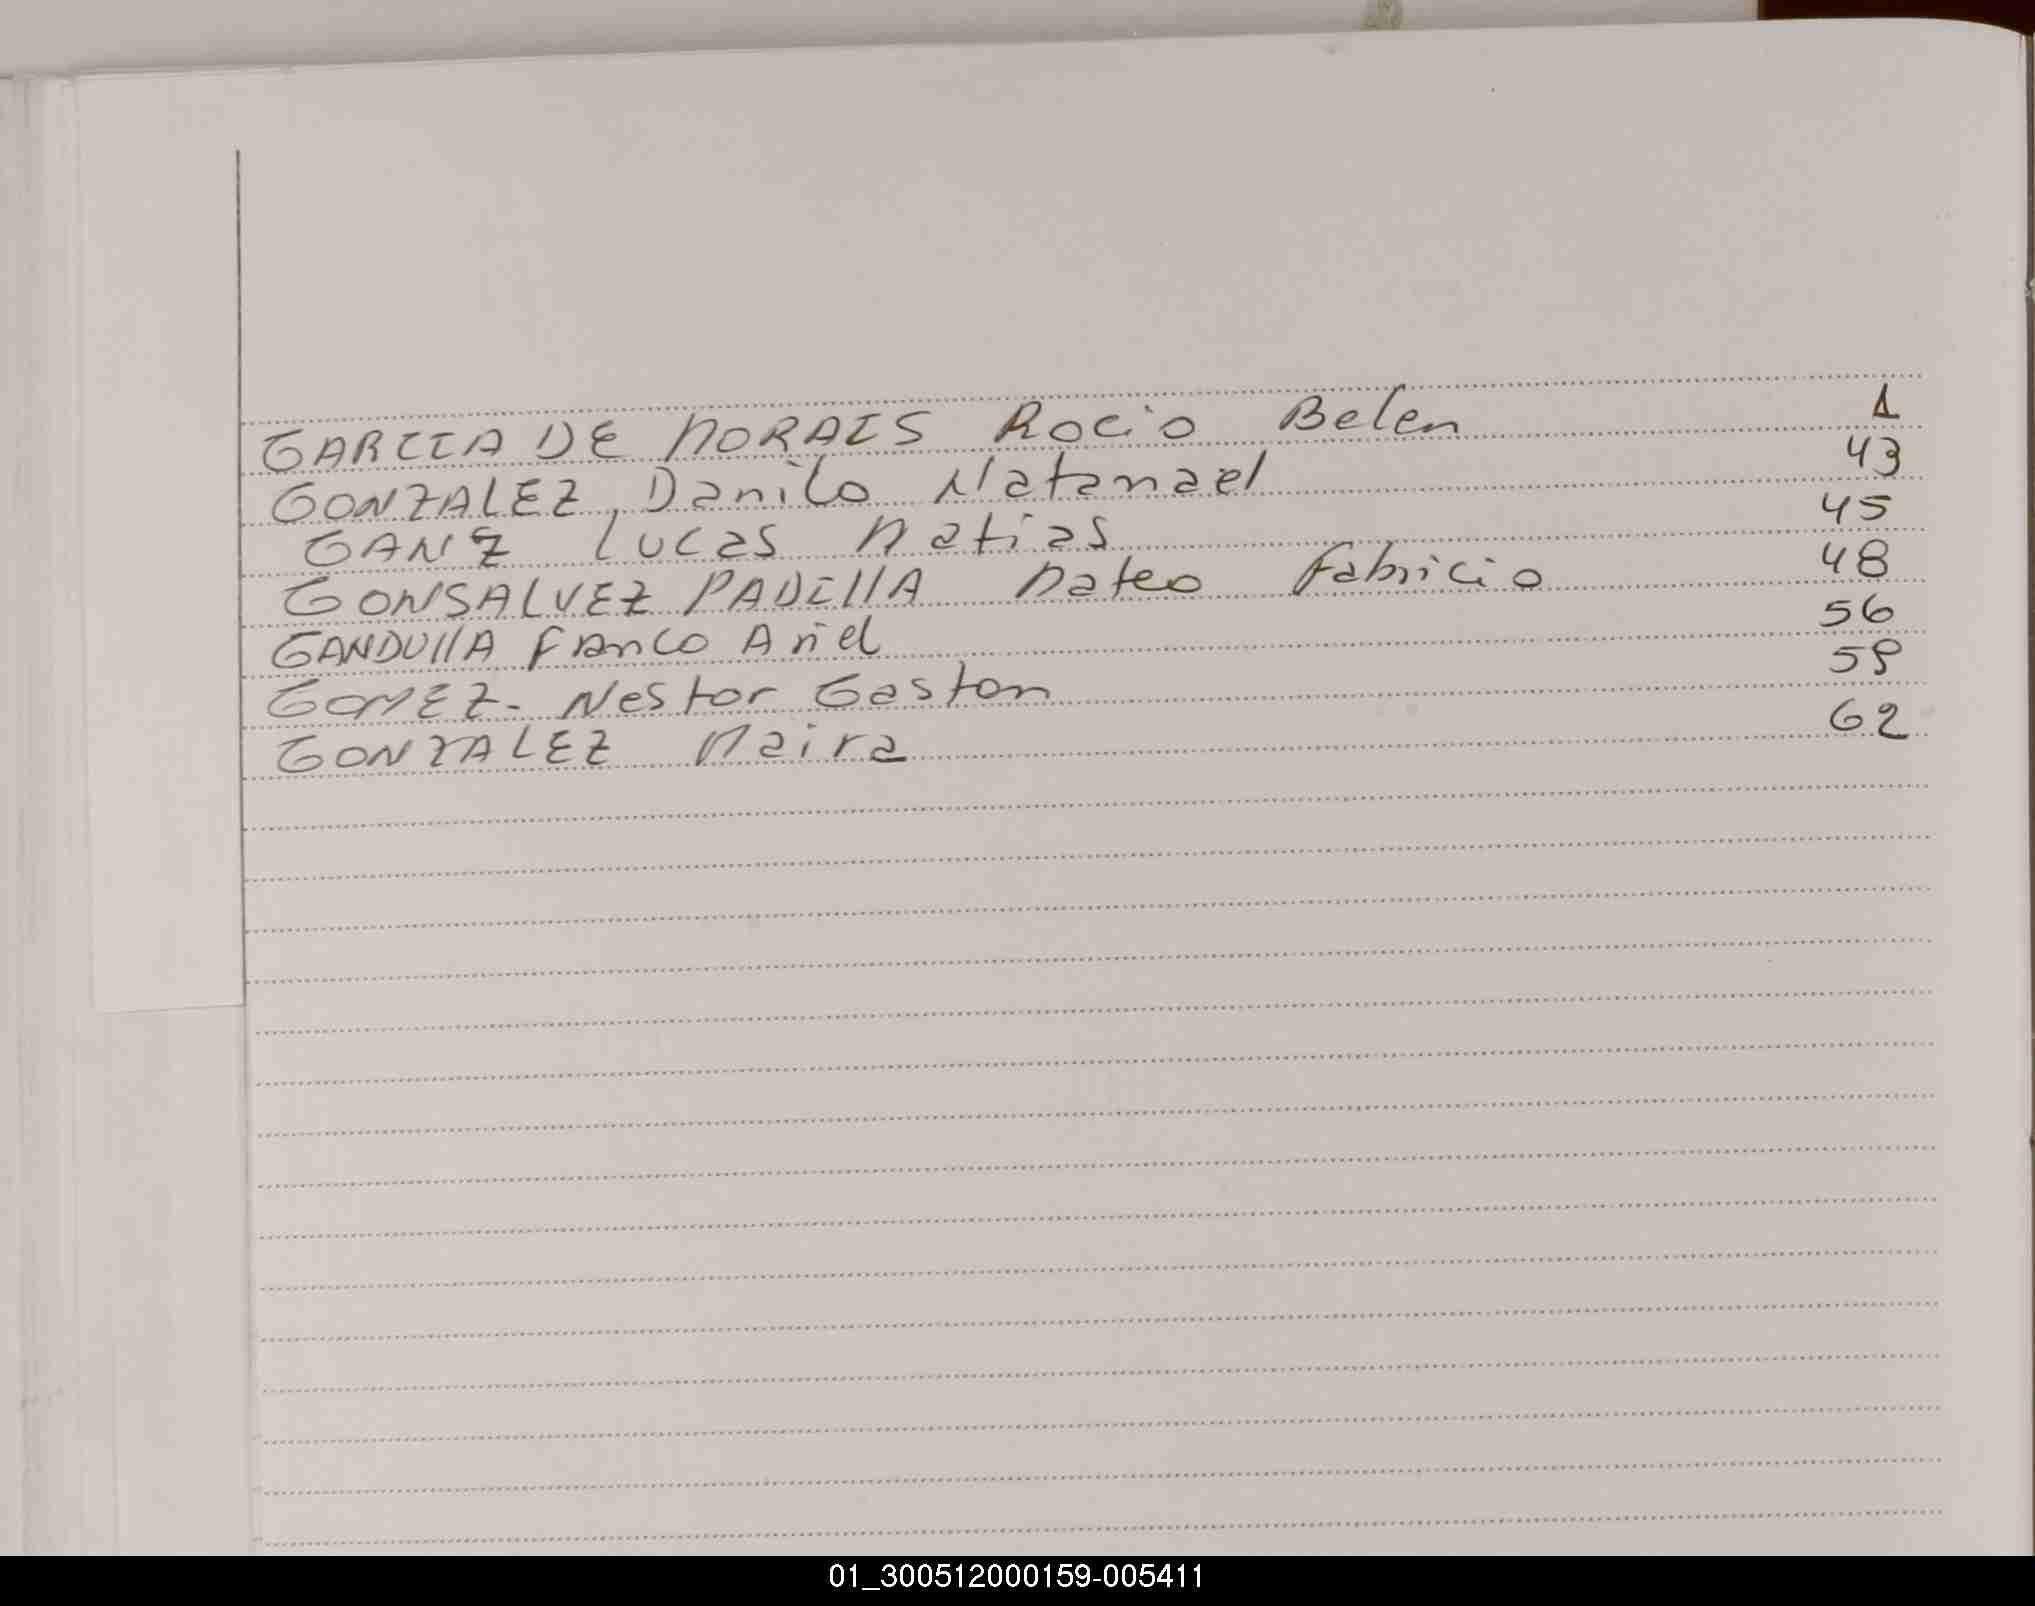 GARCIA DE MORAIS Rocio Belen 1
GONZALEZ, Danilo Natanael 43
GANZ Lucas Matias 45
GONSALVEZ PADILLA Mateo Fabricio 48
GANDULLA Franco Ariel 56
GOMEZ- Nestor Gaston 59
GONZALEZ Maira 62
01_300512000159-005411